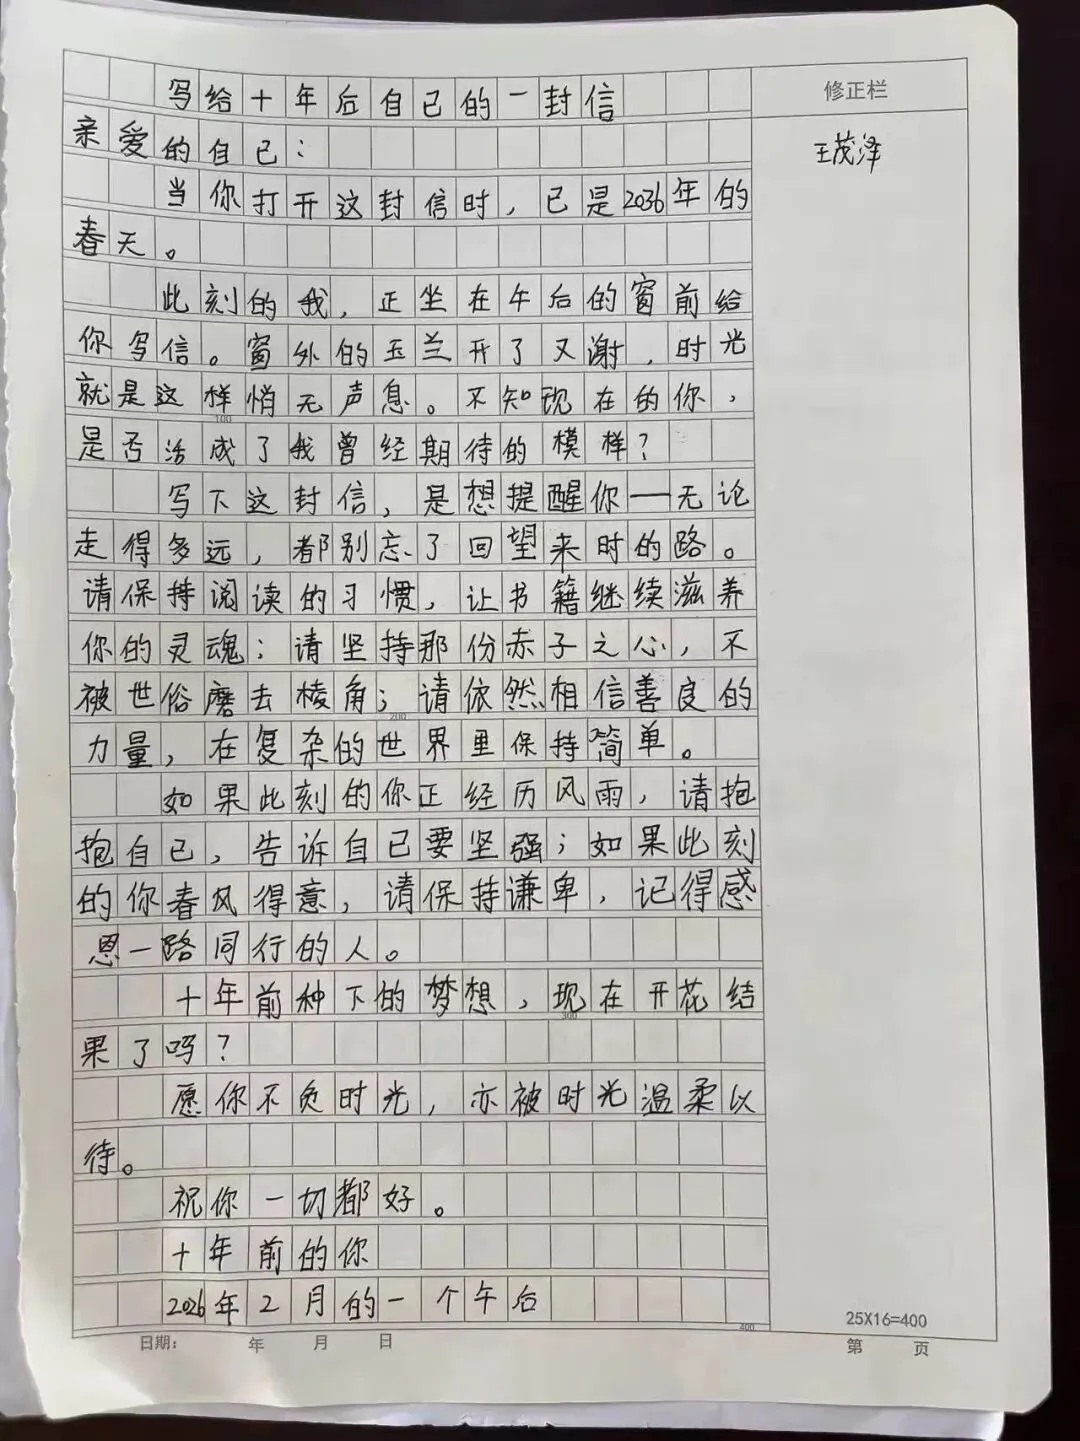 写给十年后自己的一封信
修正栏
亲爱的自己：
王茂泽
当你打开这封信时，已是2036年的
春天。
此刻的我，正坐在午后的窗前给
你写信。窗外的玉兰开了又谢，时光
就是这样悄无声息。不知现在的你，
100
是否活成了我曾经期待的模样？
写下这封信，是想提醒你——无论
走得多远，都别忘了回望来时的路。
请保持阅读的习惯，让书籍继续滋养
你的灵魂；请坚持那份赤子之心，不
被世俗磨去棱角；请依然相信善良的
200
力量，在复杂的世界里保持简单。
如果此刻的你正经历风雨，请抱
抱自己，告诉自己要坚强；如果此刻
的你春风得意，请保持谦卑，记得感
恩一路同行的人。
十年前种下的梦想，现在开花结
300
果了吗？
愿你不负时光，亦被时光温柔以
待。
祝你一切都好。
十年前的你
2026年2月的一个午后
400
25X16=400
日期： 年 月 日
第 页